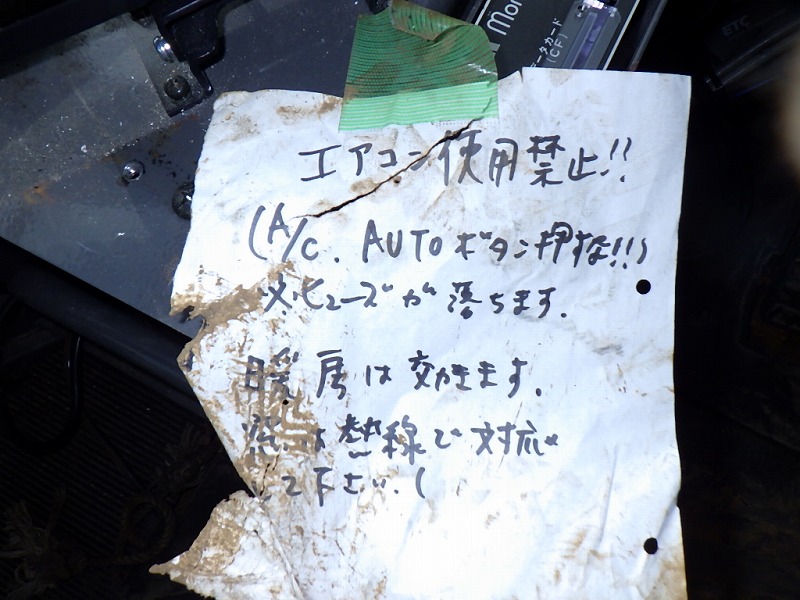 Mon
データカード
(CF)
ETC
エアコン使用禁止!!
(A/C. AUTOボタン押すな!!)
※ヒューズが落ちます.
暖房は効きます.
は熱線で対応
して下さい.(